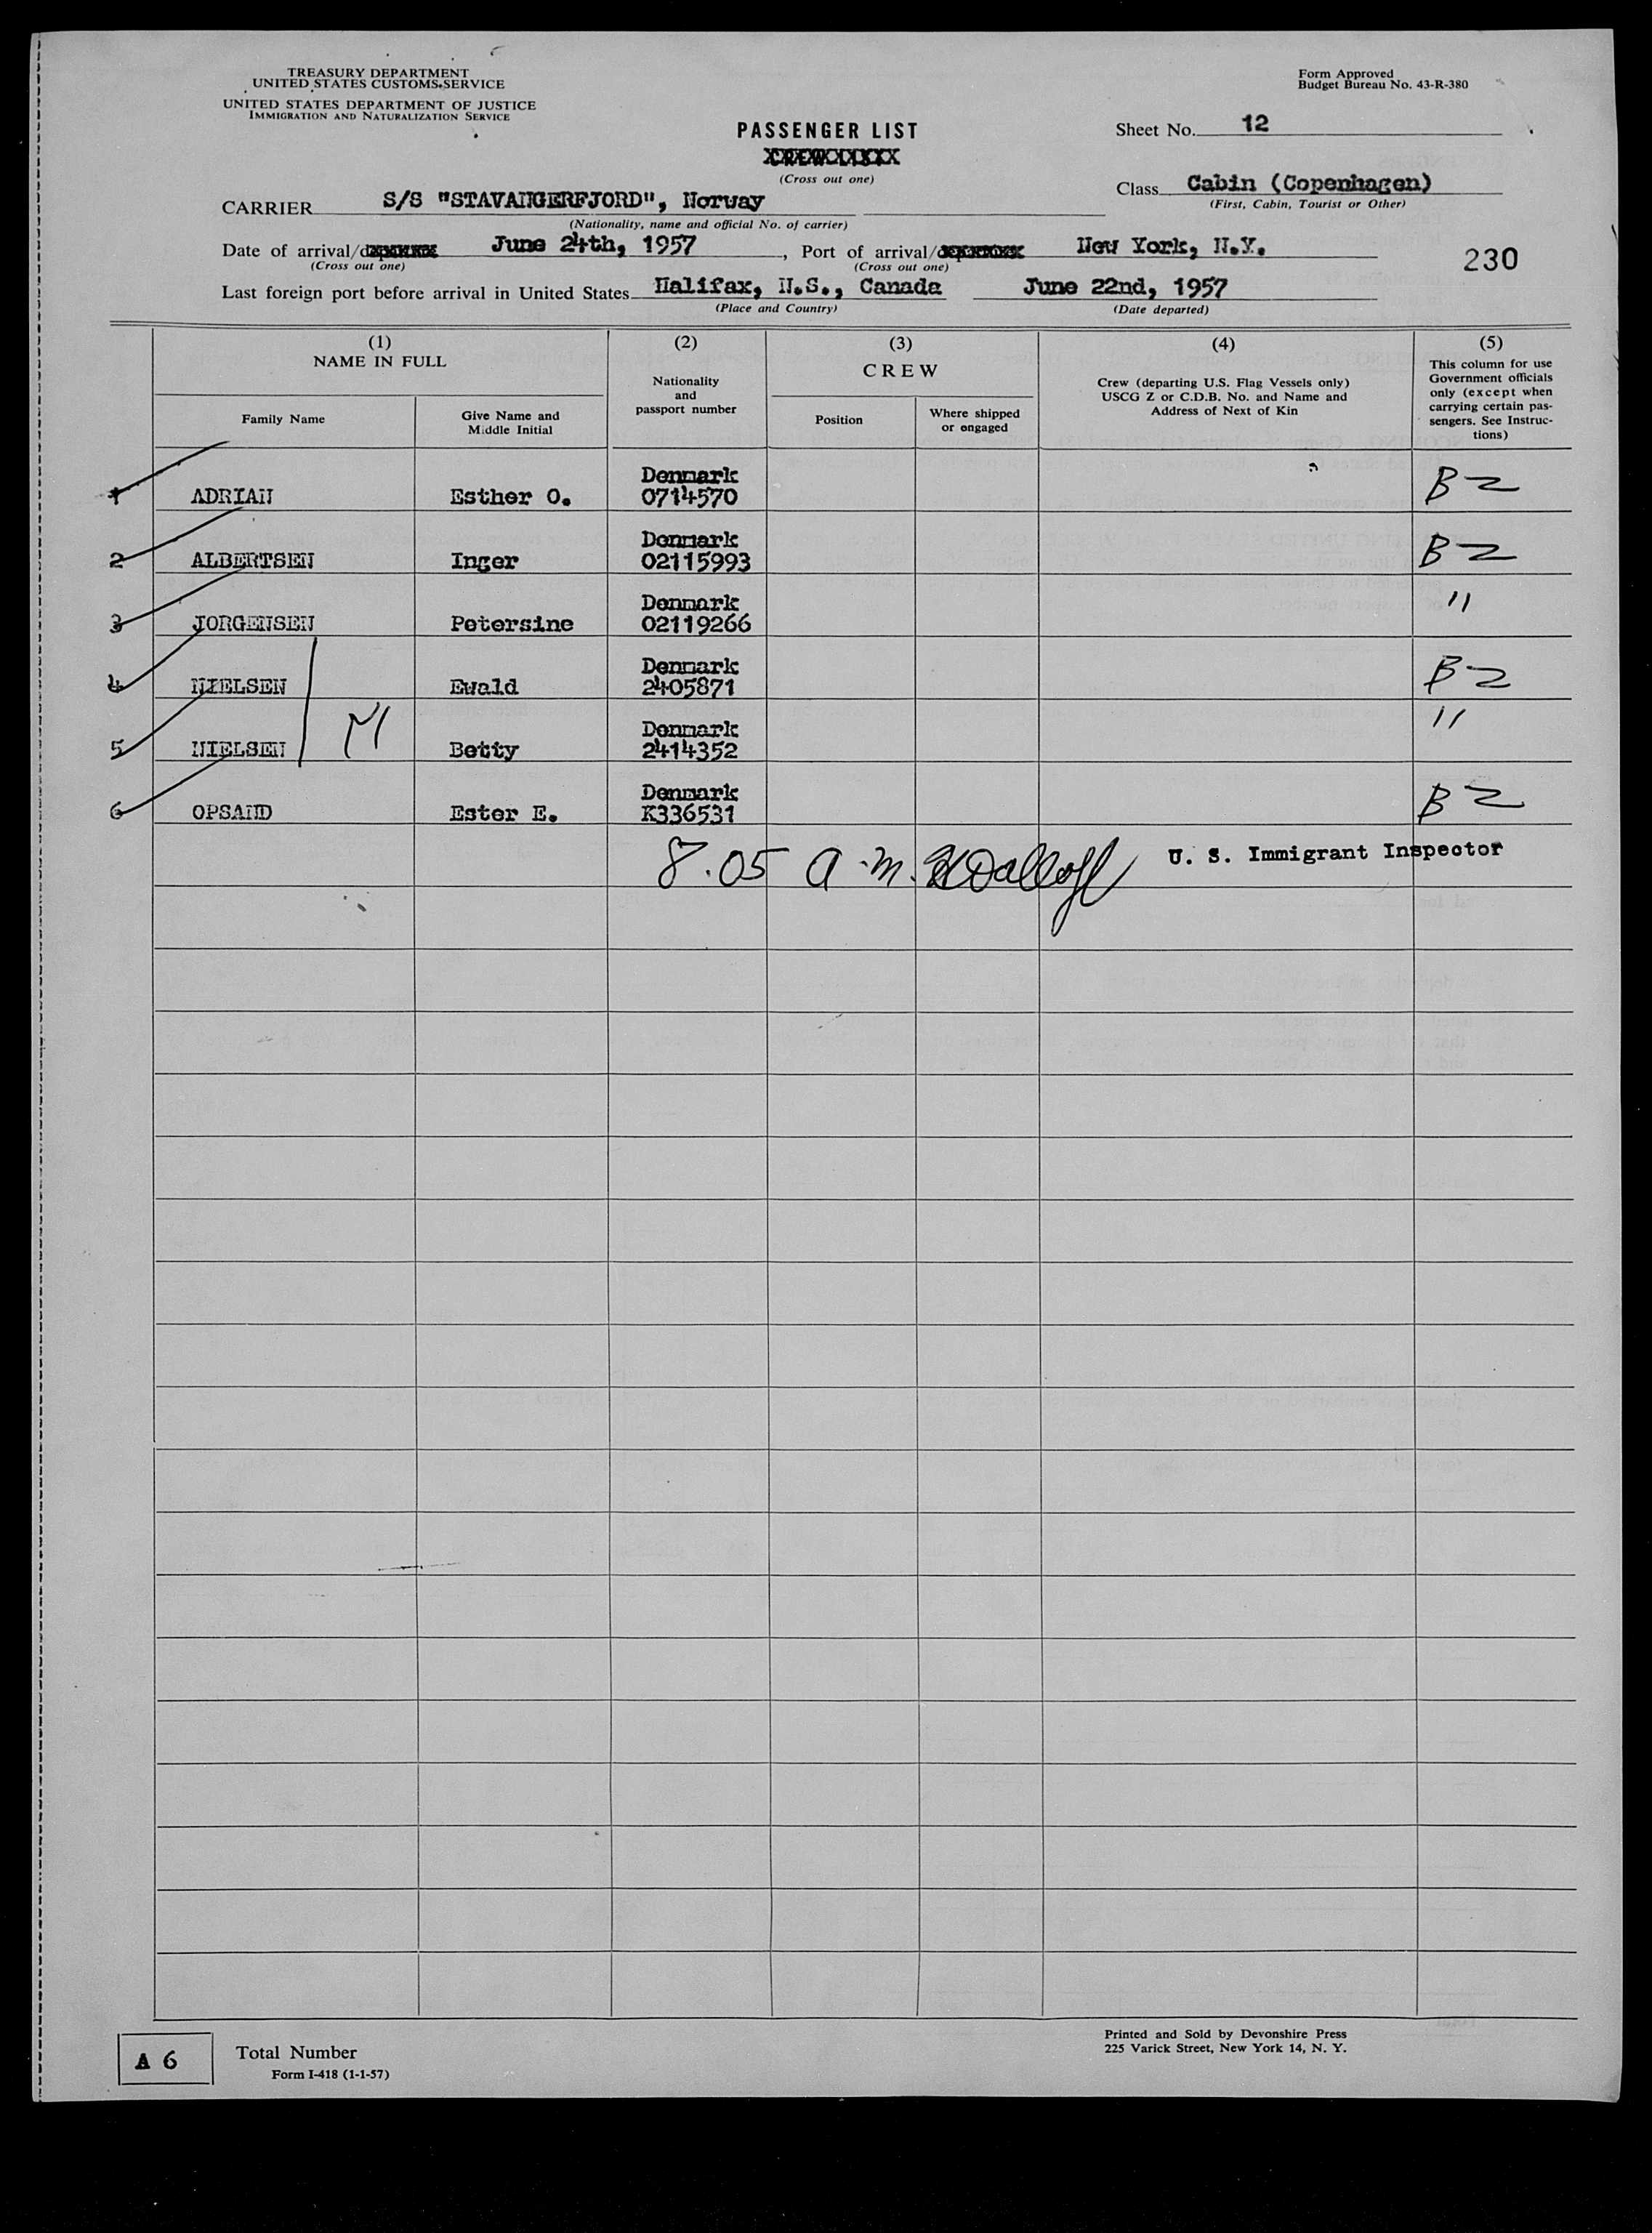 TREASURY DEPARTMENT
UNITED STATES CUSTOMS SERVICE
UNITED STATES DEPARTMENT OF JUSTICE
IMMIGRATION AND NATURALIZATION SERVICE
Form Approved
Budget Bureau No. 43-R-380
PASSENGER LIST
(Cross out one)
Sheet No. 12
Class Cabin (Copenhagen)
(First, Cabin, Tourist or Other)
CARRIER S/S "STAVANGERFJORD", Norway
(Nationality, name and official No. of carrier)
Date of arrival/ June 24th, 1957, Port of arrival/ New York, N.Y.
(Cross out one) (Cross out one)
230
Last foreign port before arrival in United States Halifax, N.S., Canada June 22nd, 1957
(Place and Country) (Date departed)
(1) (2) (3) (4) (5)
NAME IN FULL
Nationality and passport number
CREW
Crew (departing U.S. Flag Vessels only)
USCG Z or C.D.B. No. and Name and
Address of Next of Kin
This column for use
Government officials
only (except when
carrying certain pas-
sengers. See Instruc-
tions)
Family Name Give Name and Middle Initial Position Where shipped or engaged
Denmark
1 ADRIAN Esther O. 0714570 B2
Denmark
2 ALBERTSEN Inger 02115993 B2
Denmark "
3 JORGENSEN Petersine 02119266
Denmark
4 NIELSEN Ewald 2405871 B2
Denmark "
5 NIELSEN M Betty 2414352
Denmark
6 OPSAND Ester E. K336531 B2
8.05 a.m. U. S. Immigrant Inspector
A 6 Total Number
Form I-418 (1-1-57)
Printed and Sold by Devonshire Press
225 Varick Street, New York 14, N. Y.